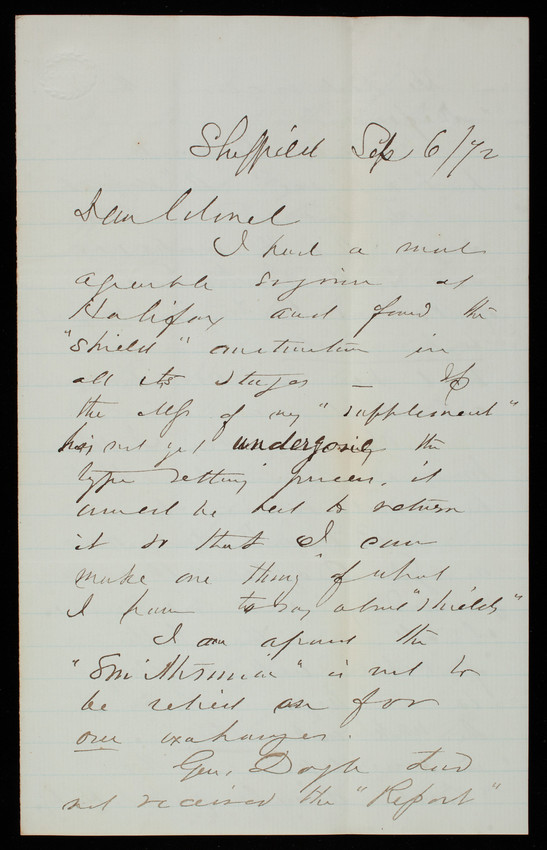 Sheffield Sep 6/72
Dear Colonel
I had a most
agreeable sojourn at
Halifax and found the
"shield" construction in
all its stages — If
the MSS of my "supplement"
has not yet undergone the
type setting process, it
would be best to return
it so that I can
make one thing of what
I have to say about "shields"
I am afraid the
"Smithsonian" is not to
be relied on for
our exchanges.
Gen. Doyle had
not received the "Report"